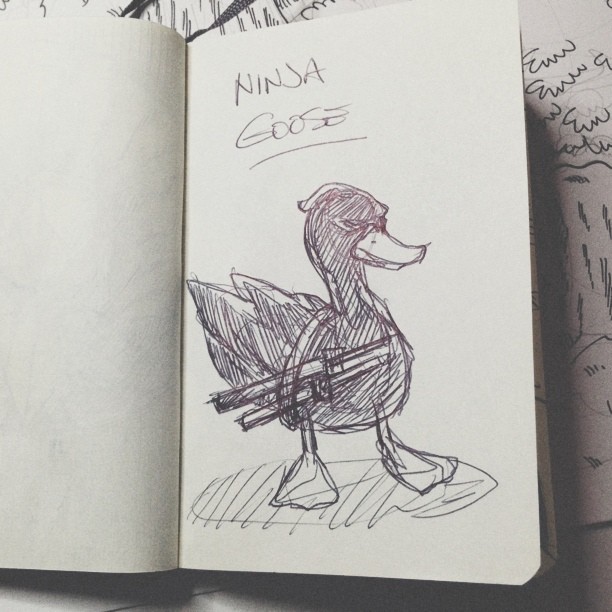 NINJA
GOOSE